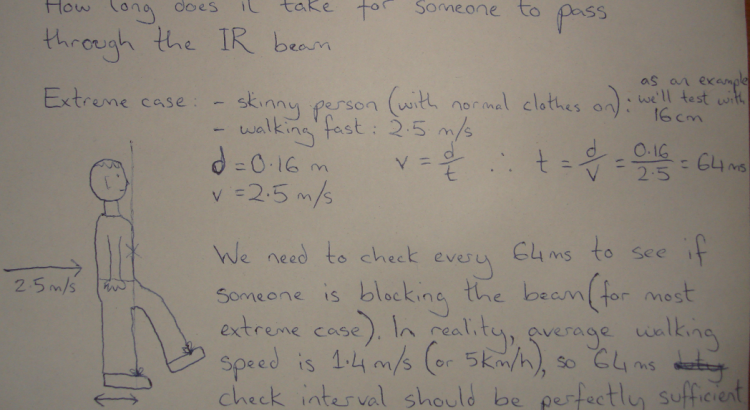 How long does it take for someone to pass
through the IR beam
Extreme case: - skinny person (with normal clothes on): as an example we'll test with 16cm
- walking fast: 2.5 m/s
d = 0.16 m
v = 2.5 m/s
v = d/t ∴ t = d/v = 0.16/2.5 = 64ms
2.5m/s
We need to check every 64ms to see if
someone is blocking the beam (for most
extreme case). In reality, average walking
speed is 1.4 m/s (or 5km/h), so 64ms
check interval should be perfectly sufficient